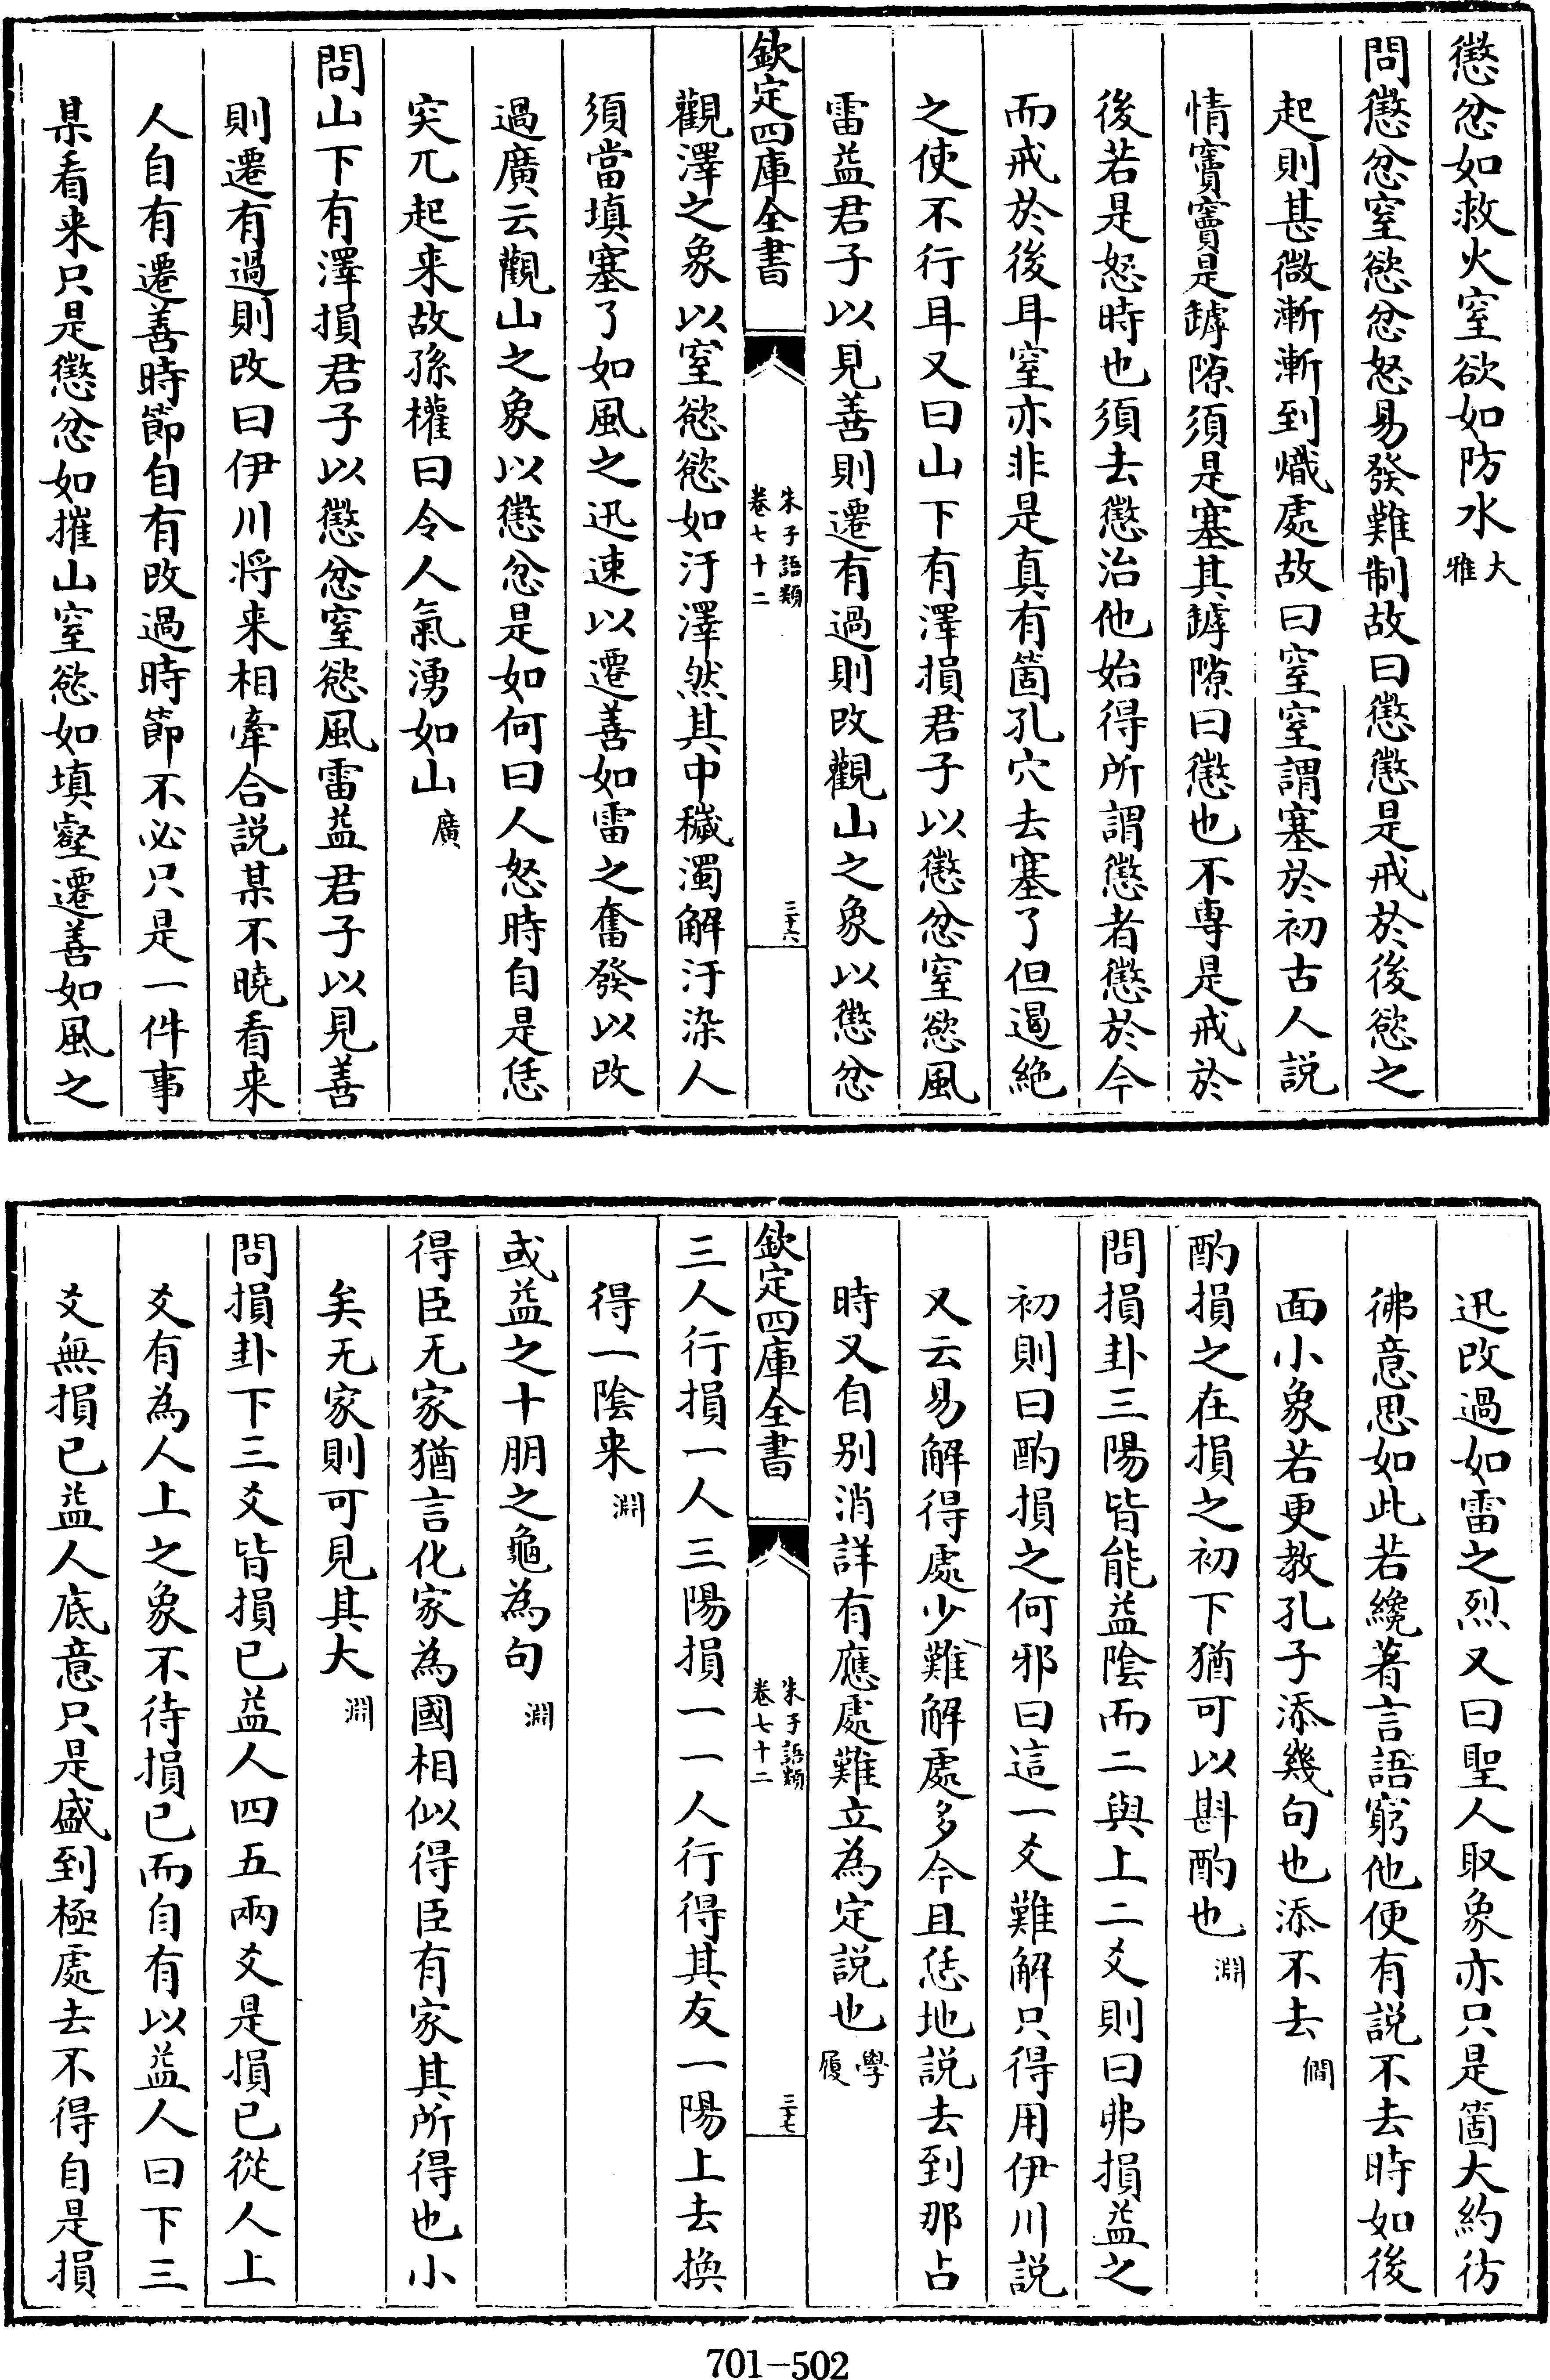 懲忿如救火窒欲如防水大雅
問懲忿窒慾忿怒易發難制故曰懲懲是戒於後慾之
起則甚微漸漸到熾處故曰窒窒謂塞於初古人説
情竇竇是罅隙須是塞其罅隙曰懲也不専是戒於
後若是怒時也須去懲治他始得所謂懲者懲於今
而戒於後耳窒亦非是真有箇孔穴去塞了但遏絶
之使不行耳又曰山下有澤損君子以懲忿窒慾風
雷益君子以見善則遷有過則改觀山之象以懲忿
欽定四庫全書
朱子語類
卷七十二
三十六
觀澤之象以窒慾慾如汙澤然其中穢濁解汙染人
須當填塞了如風之迅速以遷善如雷之奮發以改
過廣云觀山之象以懲忿是如何曰人怒時自是恁
突兀起来故孫權曰令人氣湧如山廣
問山下有澤損君子以懲忿窒慾風雷益君子以見善
則遷有過則改曰伊川将来相牽合説某不曉看来
人自有遷善時節自有改過時節不必只是一件事
某看来只是懲忿如摧山窒慾如填壑遷善如風之
迅改過如雷之烈又曰聖人取象亦只是箇大約彷
彿意思如此若纔著言語窮他便有説不去時如後
面小象若更教孔子添幾句也添不去僩
酌損之在損之初下猶可以斟酌也淵
問損卦三陽皆能益陰而二與上二爻則曰弗損益之
初則曰酌損之何邪曰這一爻難解只得用伊川説
又云易解得處少難解處多今且恁地説去到那占
時又自别消詳有應處難立為定説也學履
欽定四庫全書
朱子語類
卷七十二
三十七
三人行損一人三陽損一一人行得其友一陽上去換
得一陰来淵
或益之十朋之龜為句淵
得臣无家猶言化家為國相似得臣有家其所得也小
矣无家則可見其大淵
問損卦下三爻皆損已益人四五兩爻是損已從人上
爻有為人上之象不待損已而自有以益人曰下三
爻無損已益人底意只是盛到極處去不得自是損
701-502